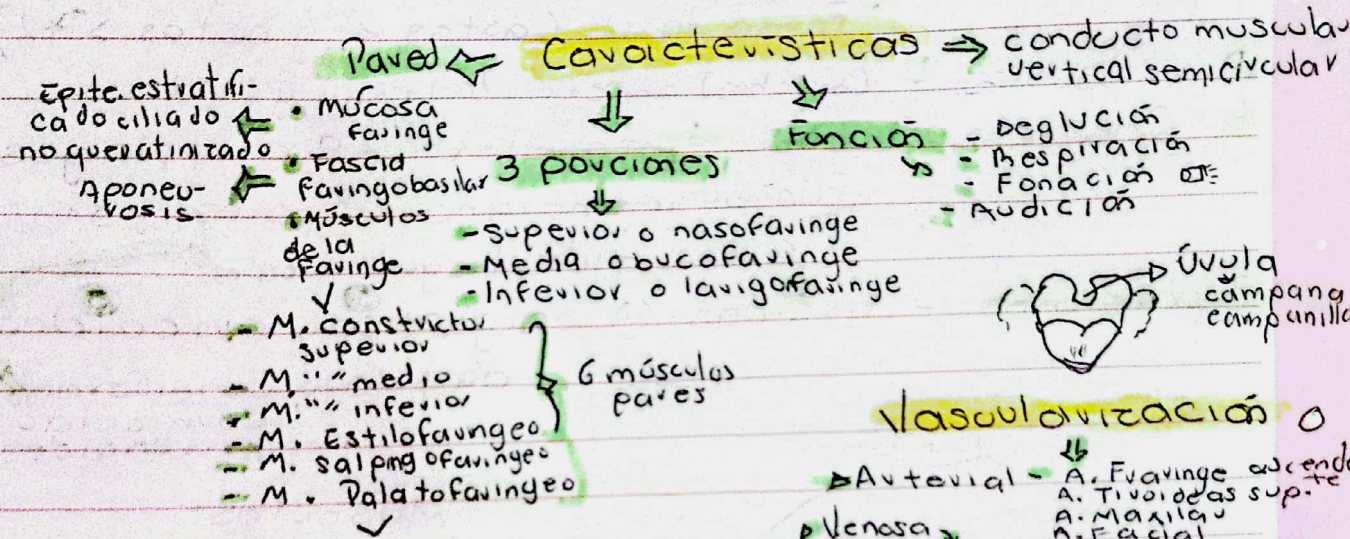 Características ⇒ conducto muscular
vertical semicircular
Pared
• Mucosa
faringe
Epite. estratifi-
cado ciliado
no queratinizado
• Fascia
faringobasilar
Aponeu-
rosis
• Músculos
de la
faringe
- M. constrictor
superior
- M. " " medio
- M. " " inferior
- M. Estilofaringeo
- M. salpingofaringeo
- M. Palatofaringeo
6 músculos
pares
3 porciones
- Superior o nasofaringe
- Media o bucofaringe
- Inferior o larigofaringe
Función
- Deglución
- Respiración
- Fonación
- Audición
Úvula
campana
campanilla
Vascularización o
Arterial - A. Fraringe ascende
te
A. Tiroideas sup.
A. Maxilar
A. Facial
Venosa